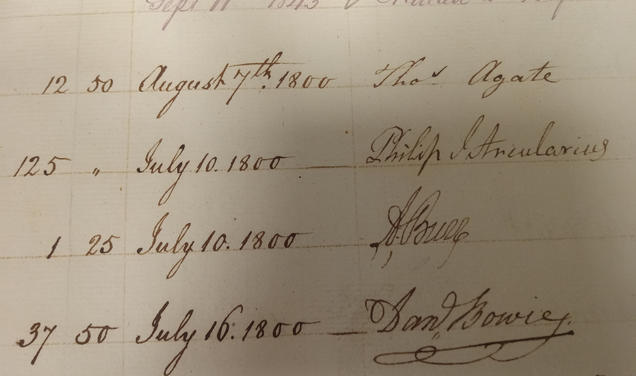 Sept 11 1843
12 50 August 7th. 1800 Thos Agate
125 " July 10. 1800 — Philip J Arcularius
1 25 July 10. 1800 A. Burr
37 50 July 16. 1800 — Danl Bowie.